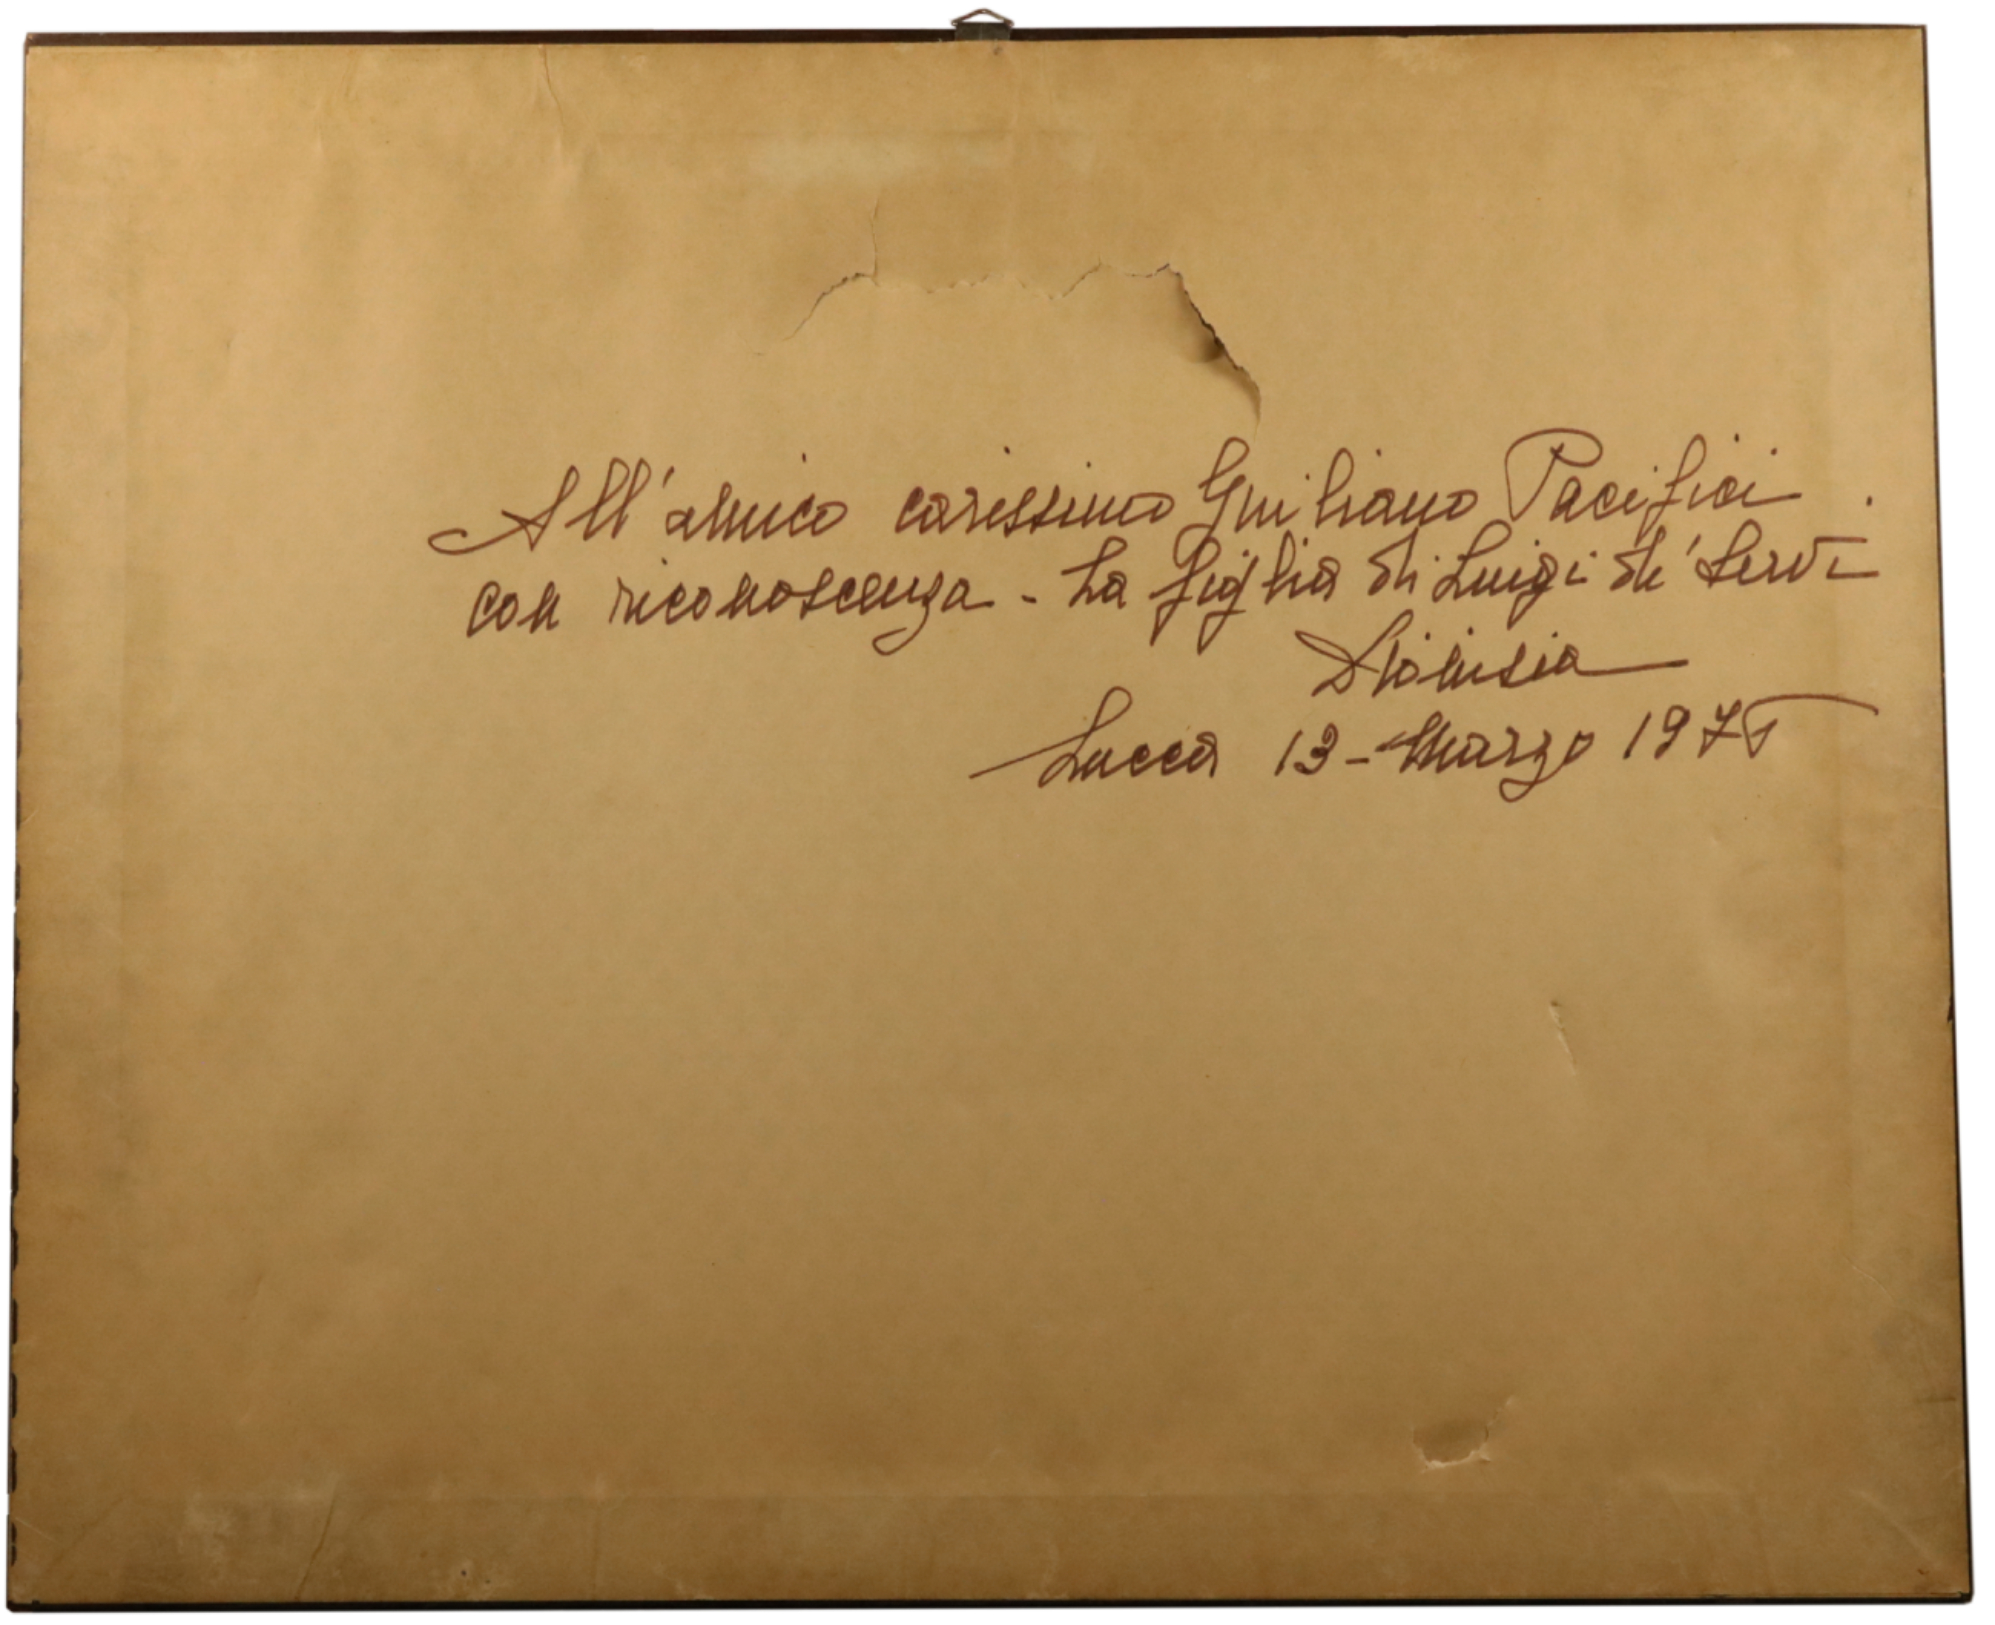 All'amico carissimo Giuliano Pacifici
con riconoscenza - La figlia di Luigi de' Servi
Dionisia
Lucca 13 - Marzo 1975